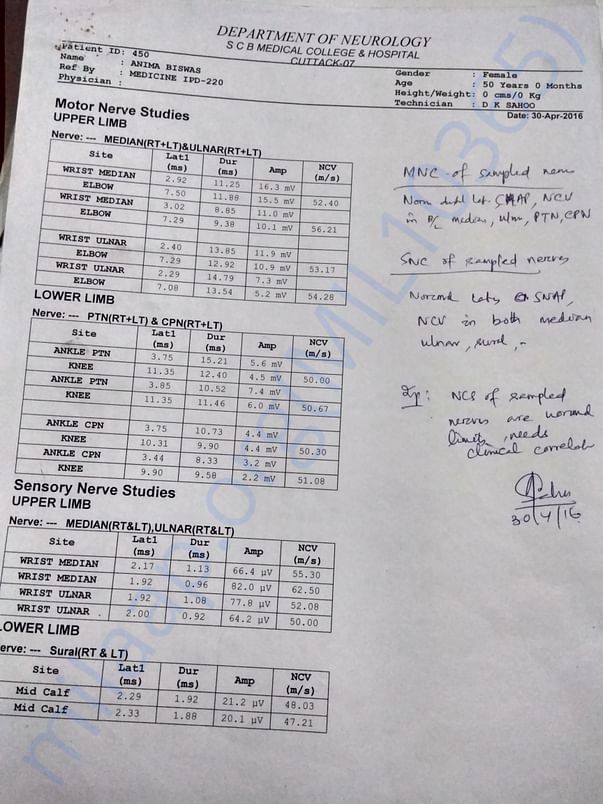 DEPARTMENT OF NEUROLOGY
S C B MEDICAL COLLEGE & HOSPITAL
CUTTACK-07
Patient ID: 450
Name : ANIMA BISWAS
Ref By : MEDICINE IPD-220
Physician :
Gender : Female
Age : 50 Years 0 Months
Height/Weight: 0 cms/0 Kg
Technician : D K SAHOO
Date: 30-Apr-2016
Motor Nerve Studies
UPPER LIMB
Nerve: --- MEDIAN(RT+LT)&ULNAR(RT+LT)
Site Lat1 (ms) Dur (ms) Amp NCV (m/s)
WRIST MEDIAN 2.92 11.25 16.3 mV
ELBOW 7.50 11.88 15.5 mV 52.40
WRIST MEDIAN 3.02 8.85 11.0 mV
ELBOW 7.29 9.38 10.1 mV 56.21
WRIST ULNAR 2.40 13.85 11.9 mV
ELBOW 7.29 12.92 10.9 mV 53.17
WRIST ULNAR 2.29 14.79 7.3 mV
ELBOW 7.08 13.54 5.2 mV 54.28
LOWER LIMB
Nerve: --- PTN(RT+LT) & CPN(RT+LT)
Site Lat1 (ms) Dur (ms) Amp NCV (m/s)
ANKLE PTN 3.75 15.21 5.6 mV
KNEE 11.35 12.40 4.5 mV 50.00
ANKLE PTN 3.85 10.52 7.4 mV
KNEE 11.35 11.46 6.0 mV 50.67
ANKLE CPN 3.75 10.73 4.4 mV
KNEE 10.31 9.90 4.4 mV 50.30
ANKLE CPN 3.44 8.33 3.2 mV
KNEE 9.90 9.58 2.2 mV 51.08
Sensory Nerve Studies
UPPER LIMB
Nerve: --- MEDIAN(RT&LT),ULNAR(RT&LT)
Site Lat1 (ms) Dur (ms) Amp NCV (m/s)
WRIST MEDIAN 2.17 1.13 66.4 µV 55.30
WRIST MEDIAN 1.92 0.96 82.0 µV 62.50
WRIST ULNAR 1.92 1.08 77.8 µV 52.08
WRIST ULNAR 2.00 0.92 64.2 µV 50.00
LOWER LIMB
erve: --- Sural(RT & LT)
Site Lat1 (ms) Dur (ms) Amp NCV (m/s)
Mid Calf 2.29 1.92 21.2 µV 48.03
Mid Calf 2.33 1.88 20.1 µV 47.21
MNC of sampled
Norm lat. NCV
in median, PTN, CPN
SNC of sampled nerves
Normal SNAP,
NCV in both median
ulnar, sural,
Imp: NCS of sampled
nerves are normal
limits, needs
clinical correlation
30/4/16